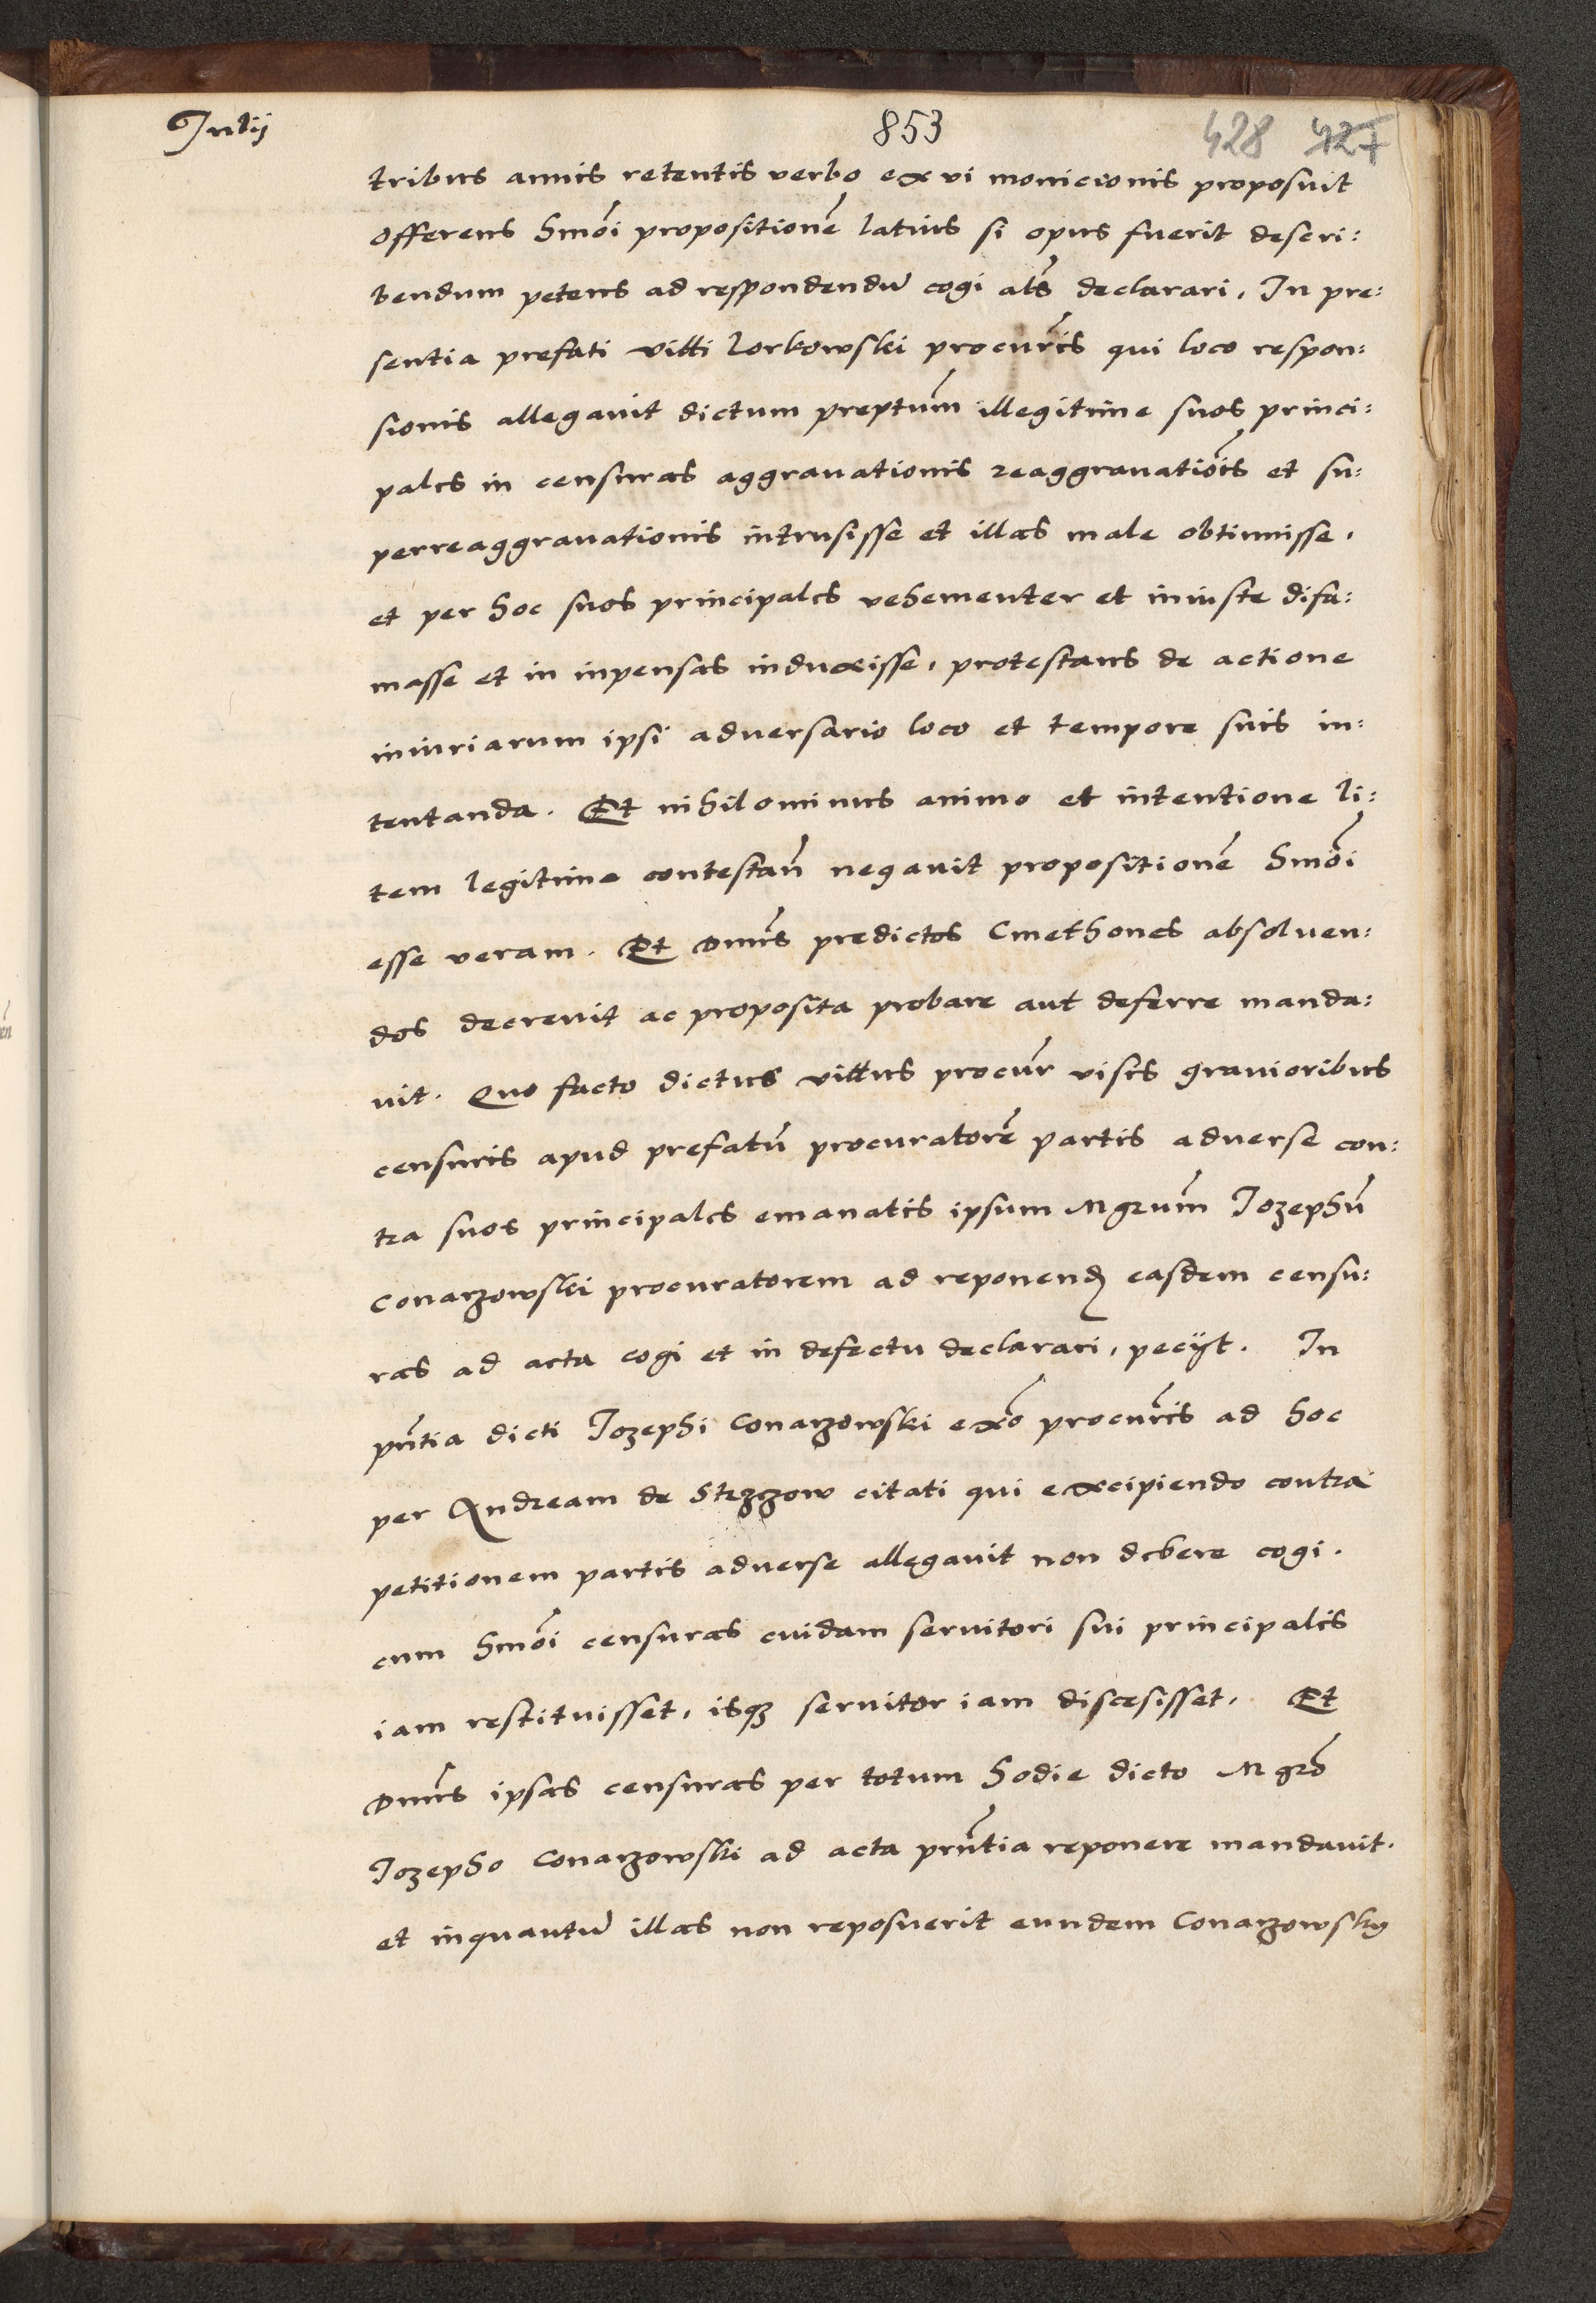 Julij
853
428 427
tribus annis retentis verbo ex vi monicionis proposuit
offerens hm̄oi propositionē latius si opus fuerit descri:
bendum petens ad respondendū cogi als̄ declarari, In pre:
sentia prefati vitti Lorkowski procurīs qui loco respon:
sionis allegavit dictum preptūm illegitime suos princi:
pales in censuras aggravationis reaggravatiōis et su:
perreaggravationis intrusisse et illas male obtinuisse,
et per hoc suos principales vehementer et iniuste difa:
masse et in inpensas induxisse, protestans de actione
iniuriarum ipsi adversario loco et tempore suis in:
tentanda. Et nihilominus animo et intentione li:
tem legitime contestan̄ negavit propositionē hm̄oi
esse veram. Et Dnūs predictos Cmethones absoluen:
dos decrevit ac proposita probare aut deferre manda:
vit. Quo facto dictus vittus procur̄ viscis gravioribus
censuris apud prefatū procuratorē partis adverse con:
tra suos principales emanatis ipsum Mgrūm Jozephū
Conarzowski procuratorem ad reponend easdem censu:
ras ad acta cogi et in defectu declarari, pecijt. In
pn̄tia dicti Jozephi Conarzowski exō procurīs ad hoc
per Andream de Strzgzow citati qui excipiendo contra
petitionem partis adverse allegavit non debere cogi.
cum hm̄oi censuras cuidam servitori sui principalis
iam restituisset, isqz servitor iam discesisset. Et
Dnūs ipsas censuras per totum hodie dicto Mgrō
Jozepho Conarzowski ad acta prn̄tia reponere mandavit.
et inquantū illas non reposuerit eundem Conarzowsky